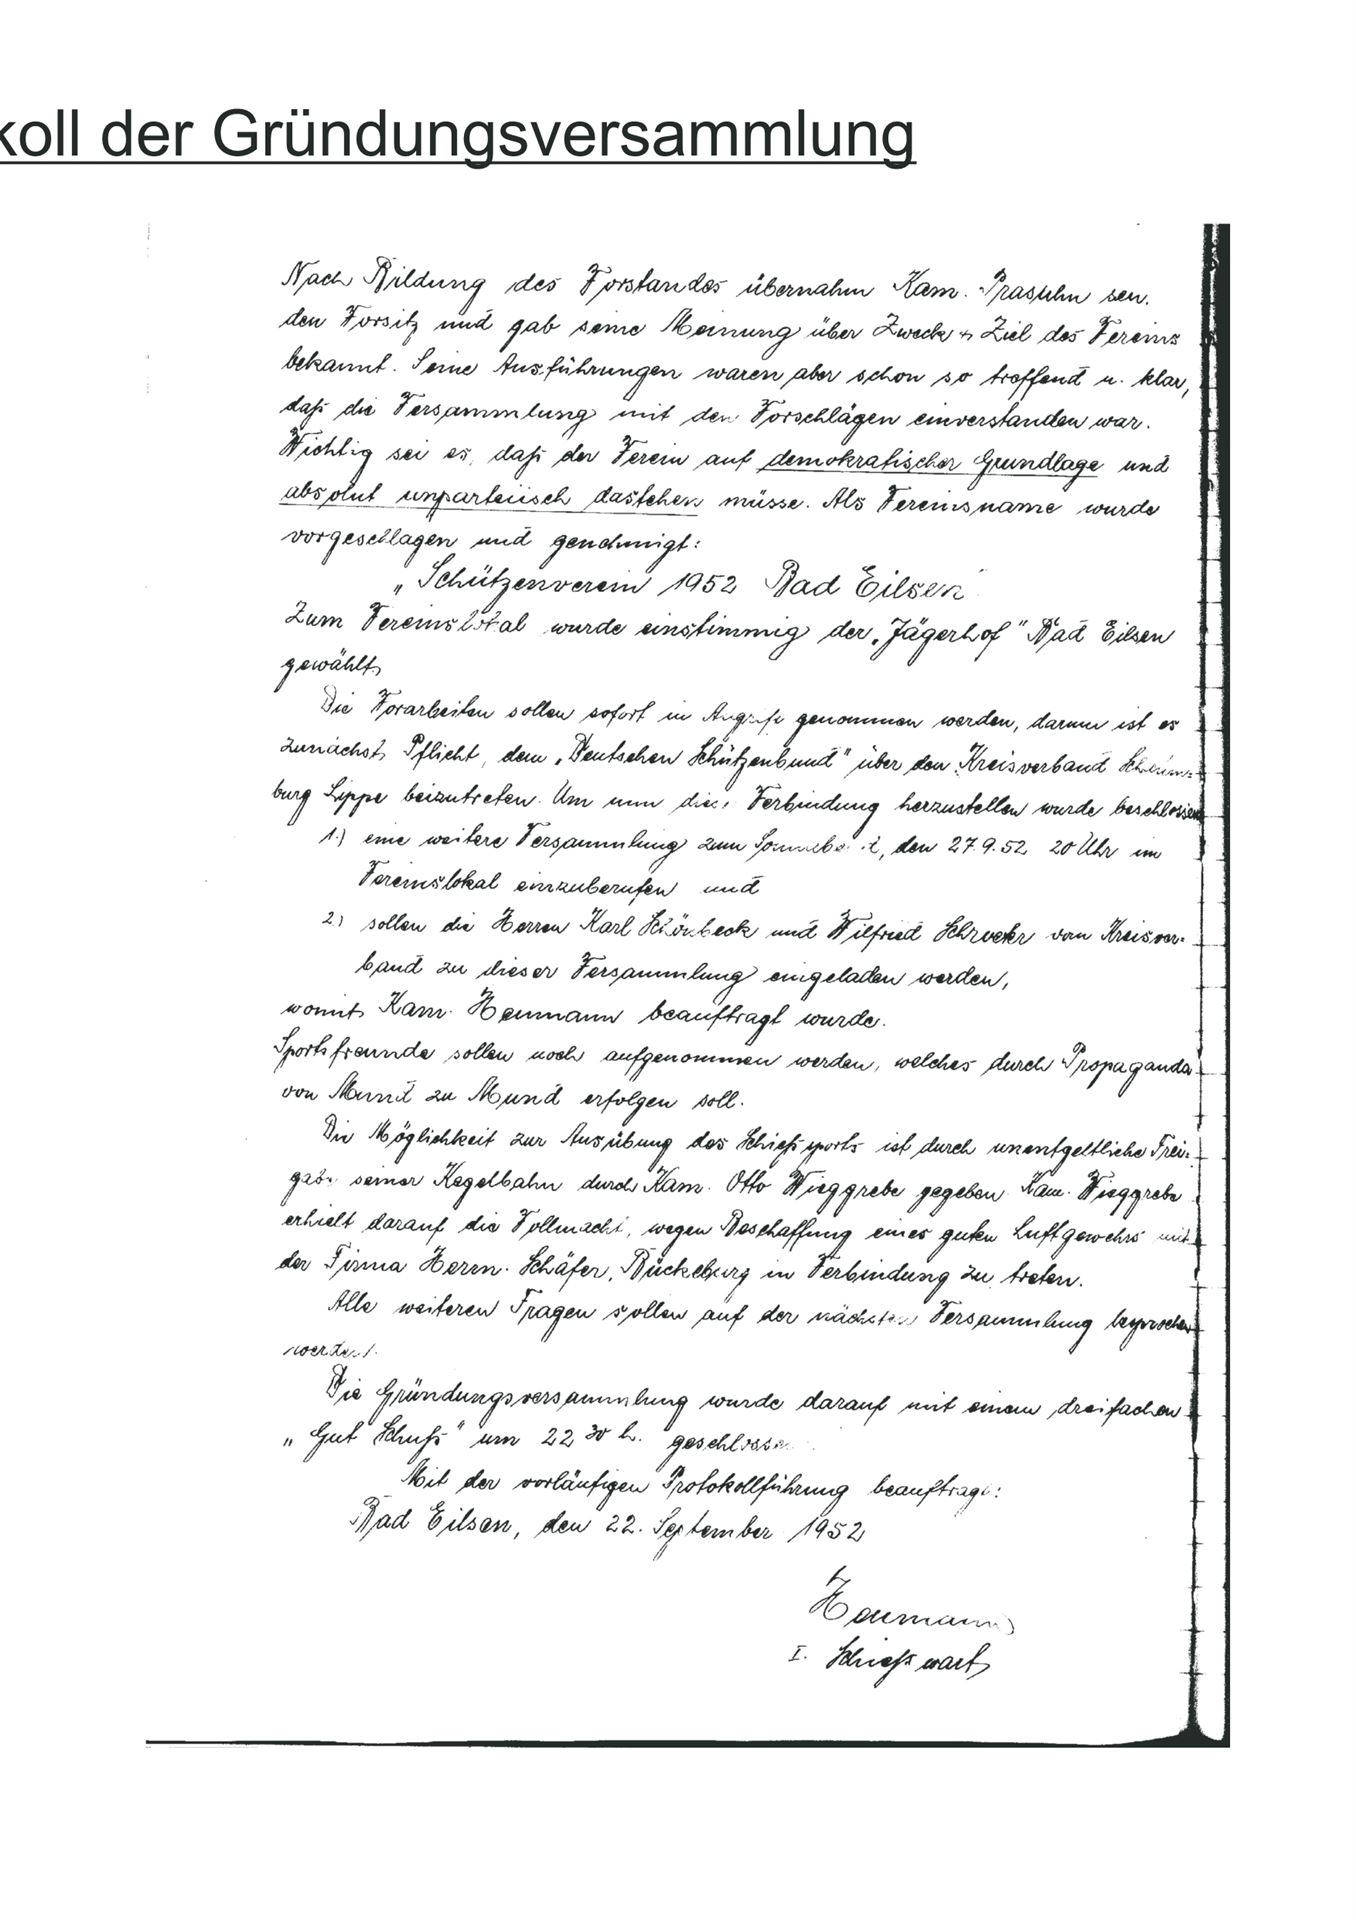 koll der Gründungsversammlung
Nach Bildung des Vorstandes übernahm Kam. Prasuhn sen.
den Vorsitz und gab seine Meinung über Zweck + Ziel des Vereins
bekannt. Seine Ausführungen waren aber schon so treffend u. klar,
daß die Versammlung mit den Vorschlägen einverstanden war.
Wichtig sei es, daß der Verein auf demokratischer Grundlage und
absolut unparteiisch dastehen müsse. Als Vereinsname wurde
vorgeschlagen und genehmigt:
„Schützenverein 1952 Bad Eilsen"
Zum Vereinslokal wurde einstimmig der „Jägerhof" Bad Eilsen
gewählt.
Die Vorarbeiten sollen sofort in Angriff genommen werden, darum ist es
zunächst Pflicht, dem „Deutschen Schützenbund" über den Kreisverband Schaum-
burg Lippe beizutreten. Um nun die Verbindung herzustellen wurde beschlossen
1.) eine weitere Versammlung zum Sonnabend, den 27.9.52 20 Uhr im
Vereinslokal einzuberufen und
2.) sollen die Herren Karl Schönbeck und Wilfried vom Kreisver-
band zu dieser Versammlung eingeladen werden,
womit Kam. Heumann beauftragt wurde.
Sportsfreunde sollen noch aufgenommen werden, welches durch Propaganda
von Mund zu Mund erfolgen soll.
Die Möglichkeit zur Ausübung des Schießsports ist durch unentgeltliche Frei-
gabe seiner Kegelbahn durch Kam. Otto Wieggrebe gegeben. Kam. Wieggrebe
erhielt darauf die Vollmacht, wegen Beschaffung eines guten Luftgewehrs mit
der Firma Herrn. Schäfer, Bückeburg in Verbindung zu treten.
Alle weiteren Fragen sollen auf der nächsten Versammlung besprochen
werden.
Die Gründungsversammlung wurde darauf mit einem dreifachen
„Gut Schuß" um 22 30 h. geschlossen
Mit der vorläufigen Protokollführung beauftragt:
Bad Eilsen, den 22. September 1952
Heumann
I. Schießwart